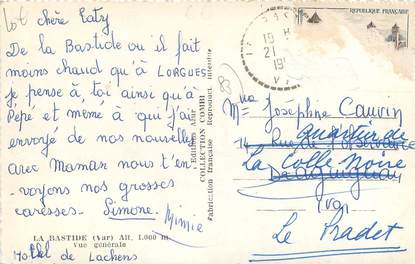 chère Caty
De la Bastide où il fait
moins chaud qu'à LORGUES
je pense à toi ainsi qu'à
Pépé et même à qui j'ai
envoyé de nos nouvelles
avec Maman nous t'en-
voyons nos grosses
caresses. Simone. Mimie
LA BASTIDE (Var) Alt. 1.000 m.
Vue générale
Hôtel de Lachens
Editions Aris
COLLECTION COMBI
Fabrication française Reproduct. Interdite
REPUBLIQUE FRANÇAISE
19 H
21
19
Mme Joséphine Cauvin
14 Rue de l'Observance
Quartier de
La Colle Noire
Draguignan
Var
Le Pradet